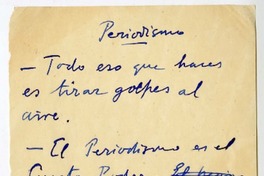 Periodismo
— Todo eso que haces
es tirar golpes al
aire.
— El Periodismo es el
Cuarto Poder.